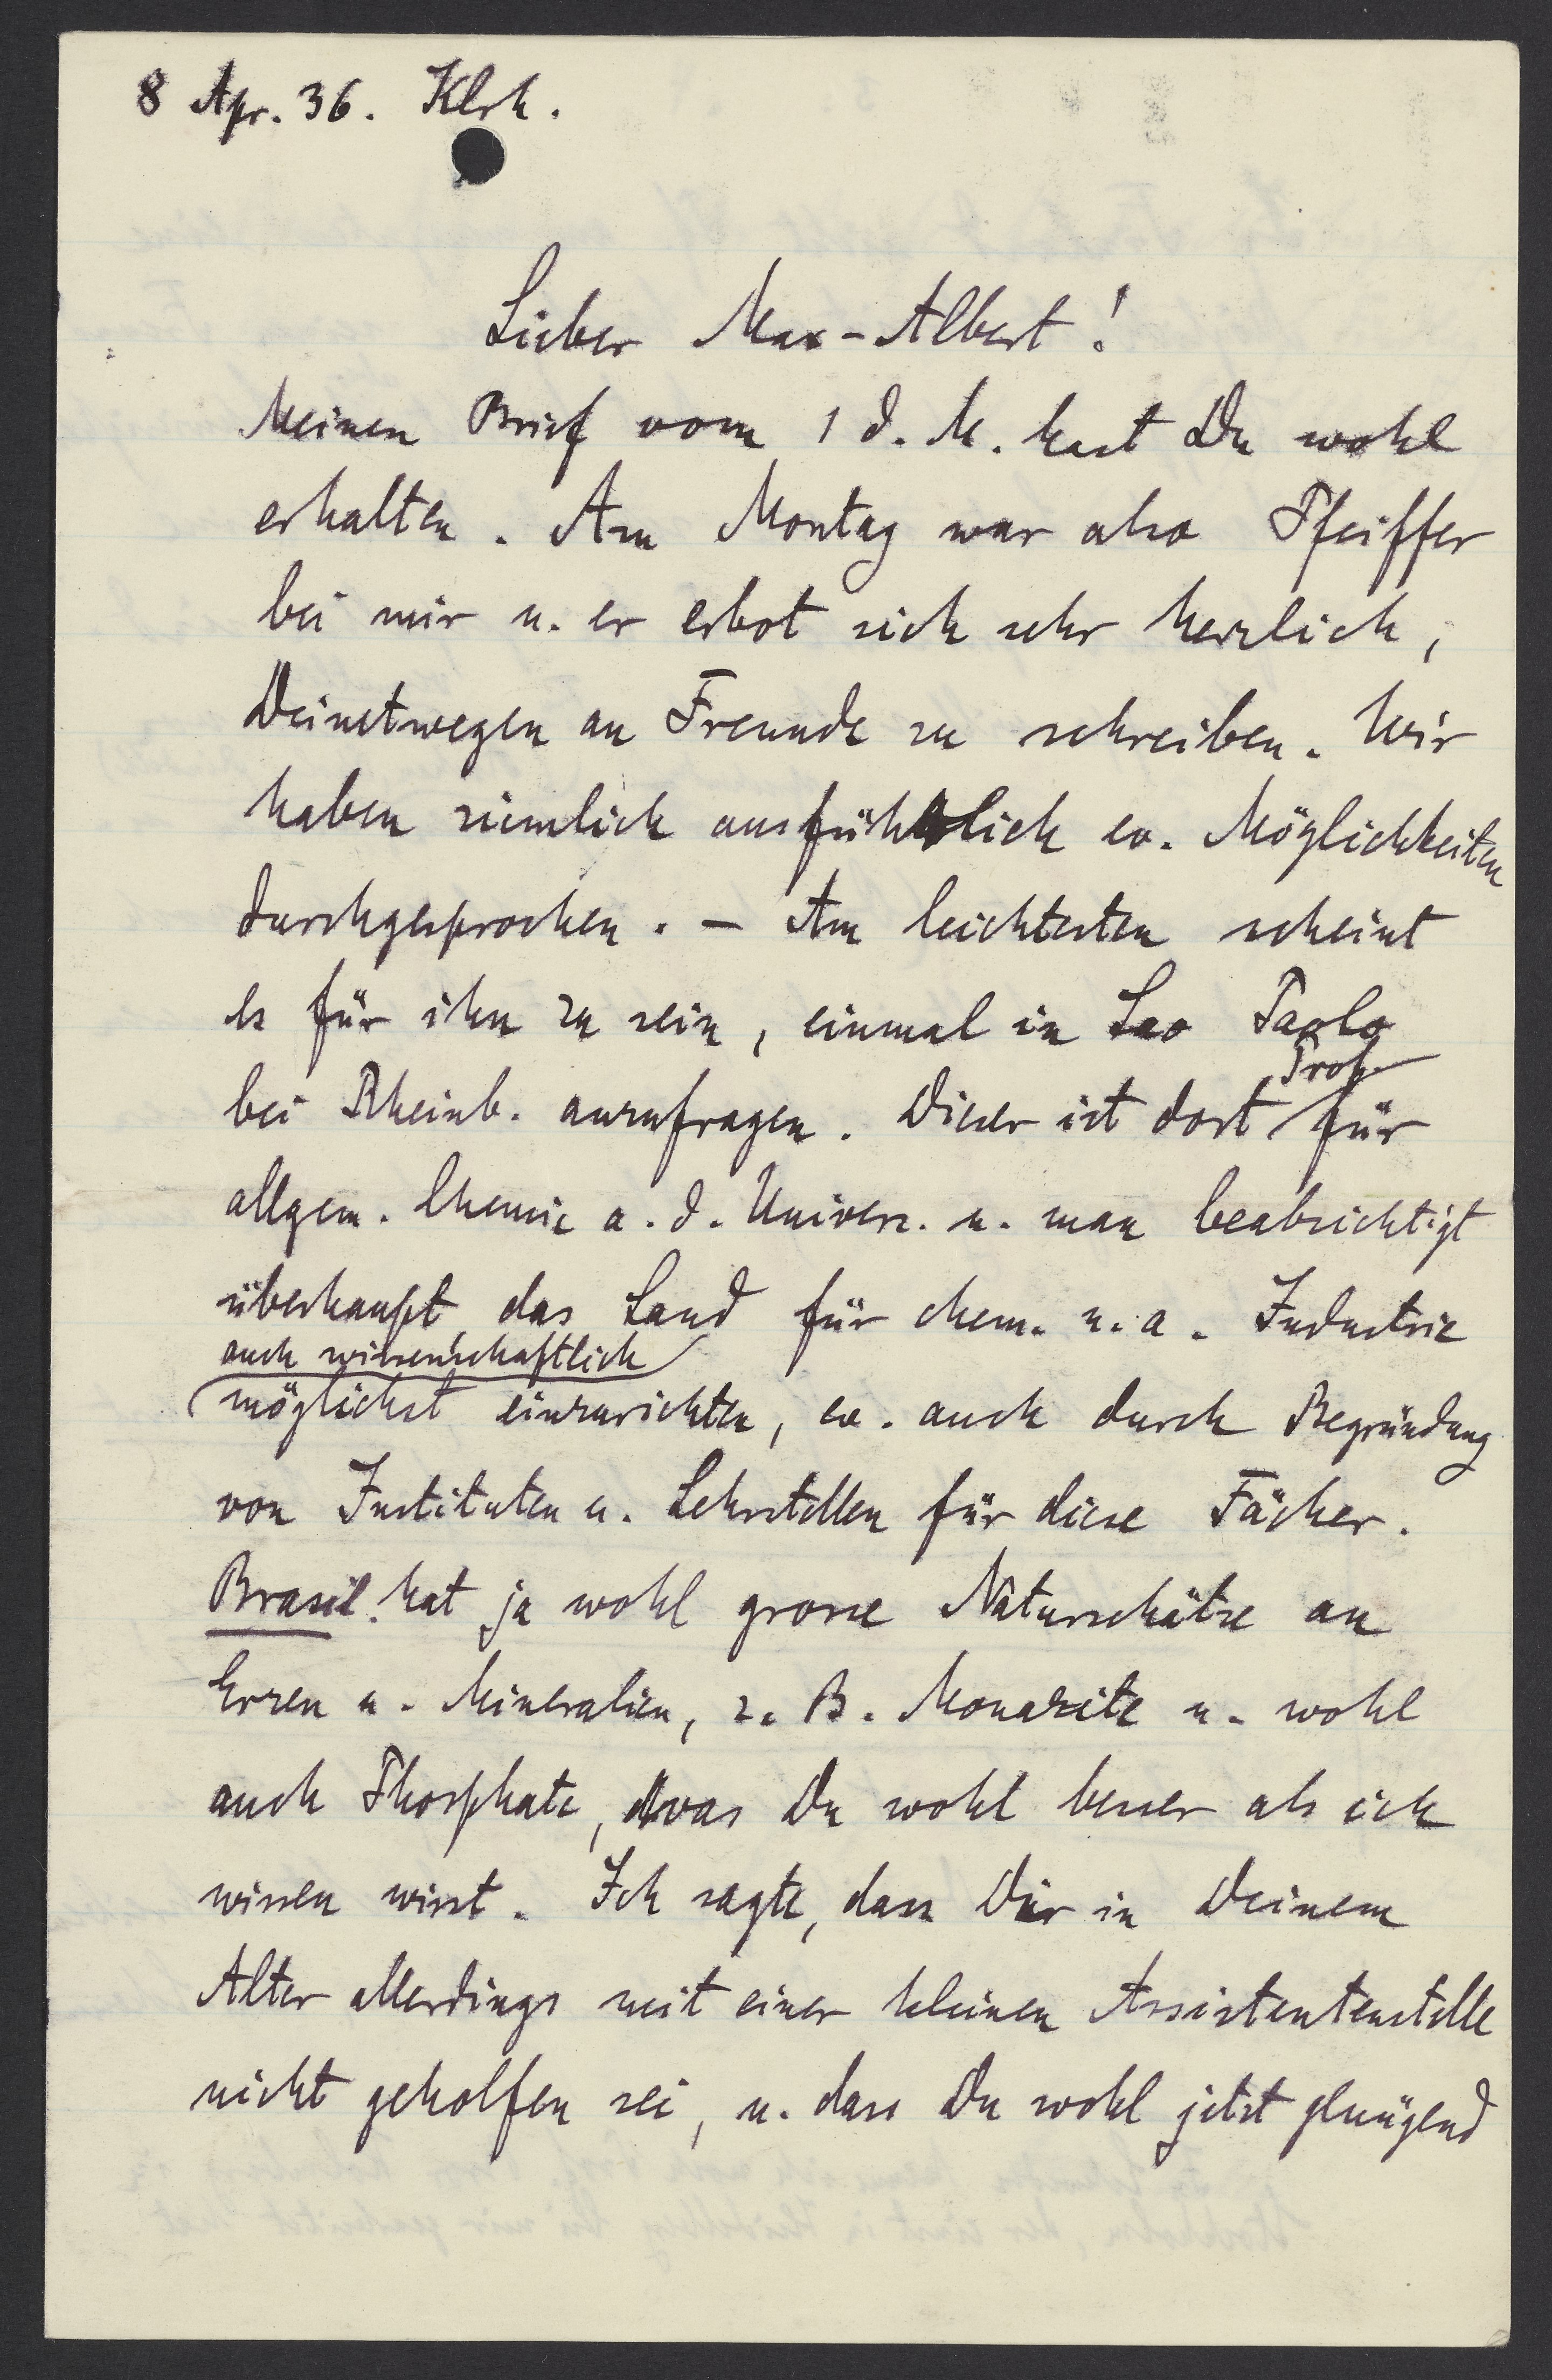 8 Apr. 36. Klrh.
Lieber Max-Albert!
Meinen Brief vom 1 d. M. hast Du wohl
erhalten. Am Montag war also Pfeiffer
bei mir u. er erbot sich sehr herzlich,
Deinetwegen an Freunde zu schreiben. Wir
haben ziemlich ausführlich ev. Möglichkeiten
durchgesprochen. – Am leichtesten scheint
es für ihn zu sein, einmal in Sao Paolo
bei Rheinb. anzufragen. Dieser ist dort Prof. für
allgem. Chemie a. d. Univers. u. man beabsichtigt
überhaupt das Land für chem. u. a. Industrie
auch wissenschaftlich
möglichst einzurichten, ev. auch durch Begründung
von Instituten u. Lehrstellen für diese Fächer.
Brasil. hat ja wohl grosse Naturschätze an
Erzen u. Mineralien, z. B. Monazite u. wohl
auch Phosphate, was Du wohl besser als ich
wissen wirst. Ich sagte, dass Dir in Deinem
Alter allerdings mit einer kleinen Assistentenstelle
nicht geholfen sei, u. dass Du wohl jetzt genügend